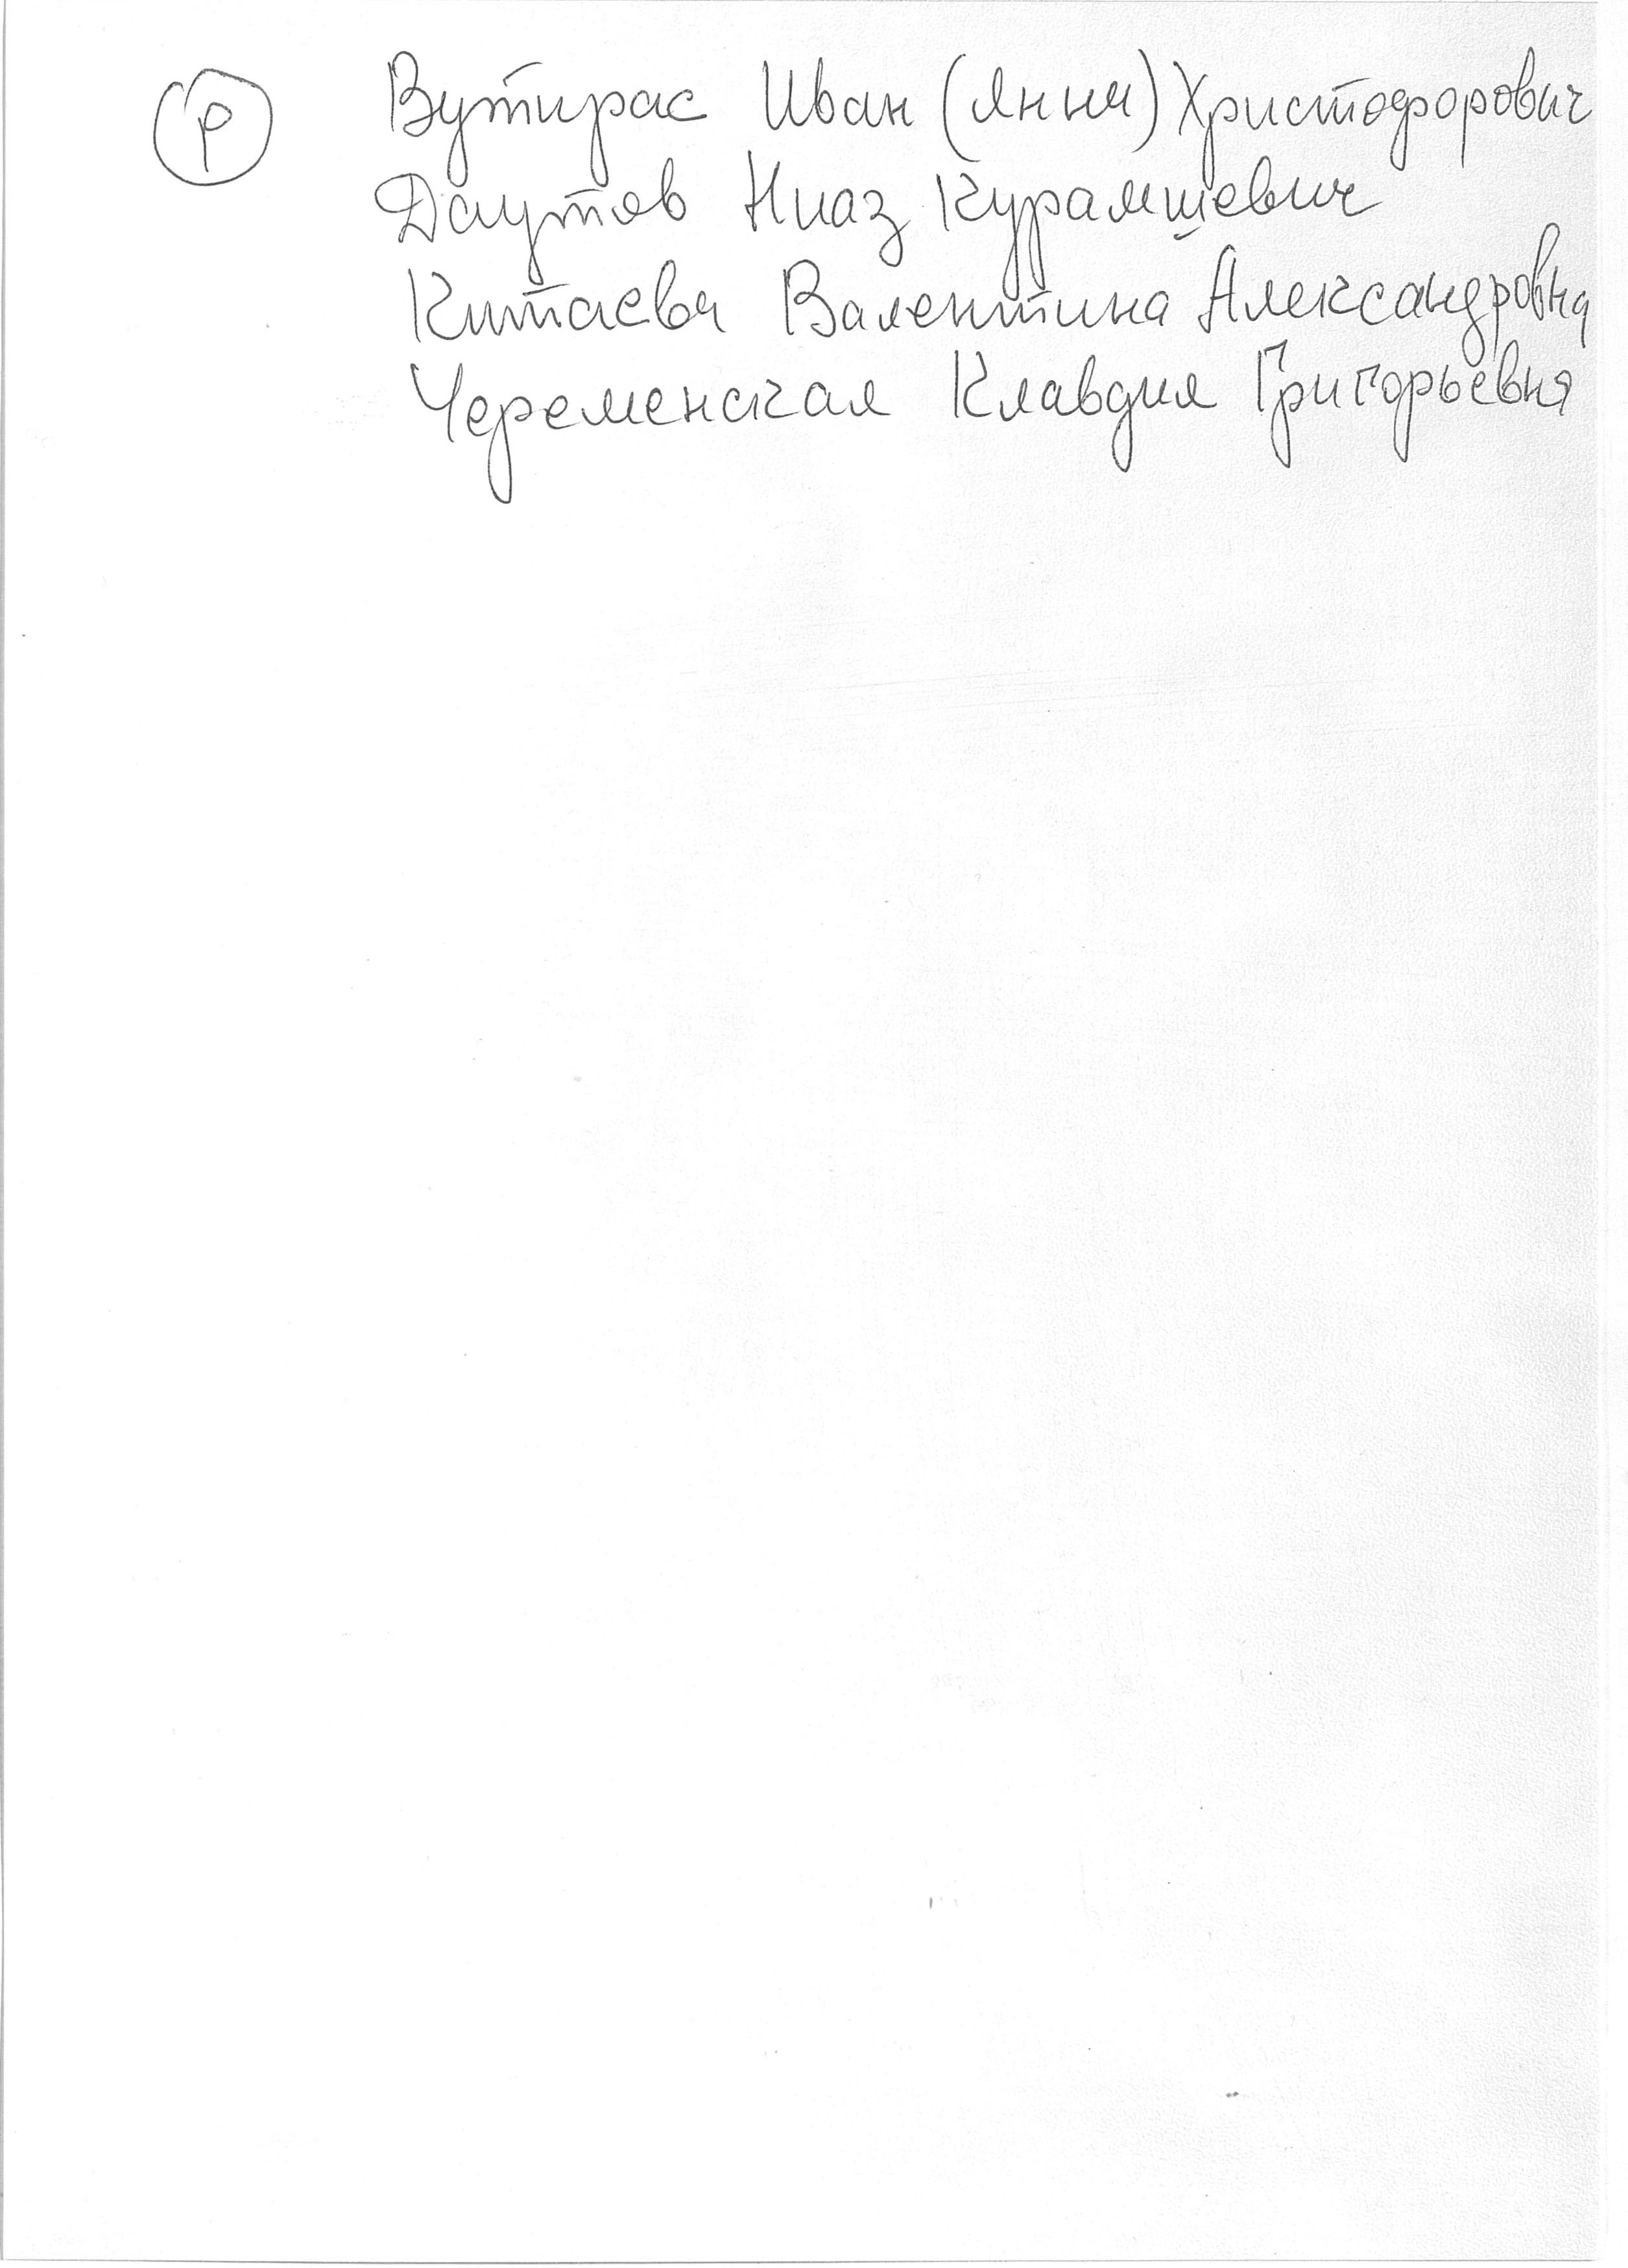 Р Вутирас Иван (Янни) Христофорович
Даутов Нияз Курамшевич
Китаева Валентина Александровна
Черменская Клавдия Григорьевна